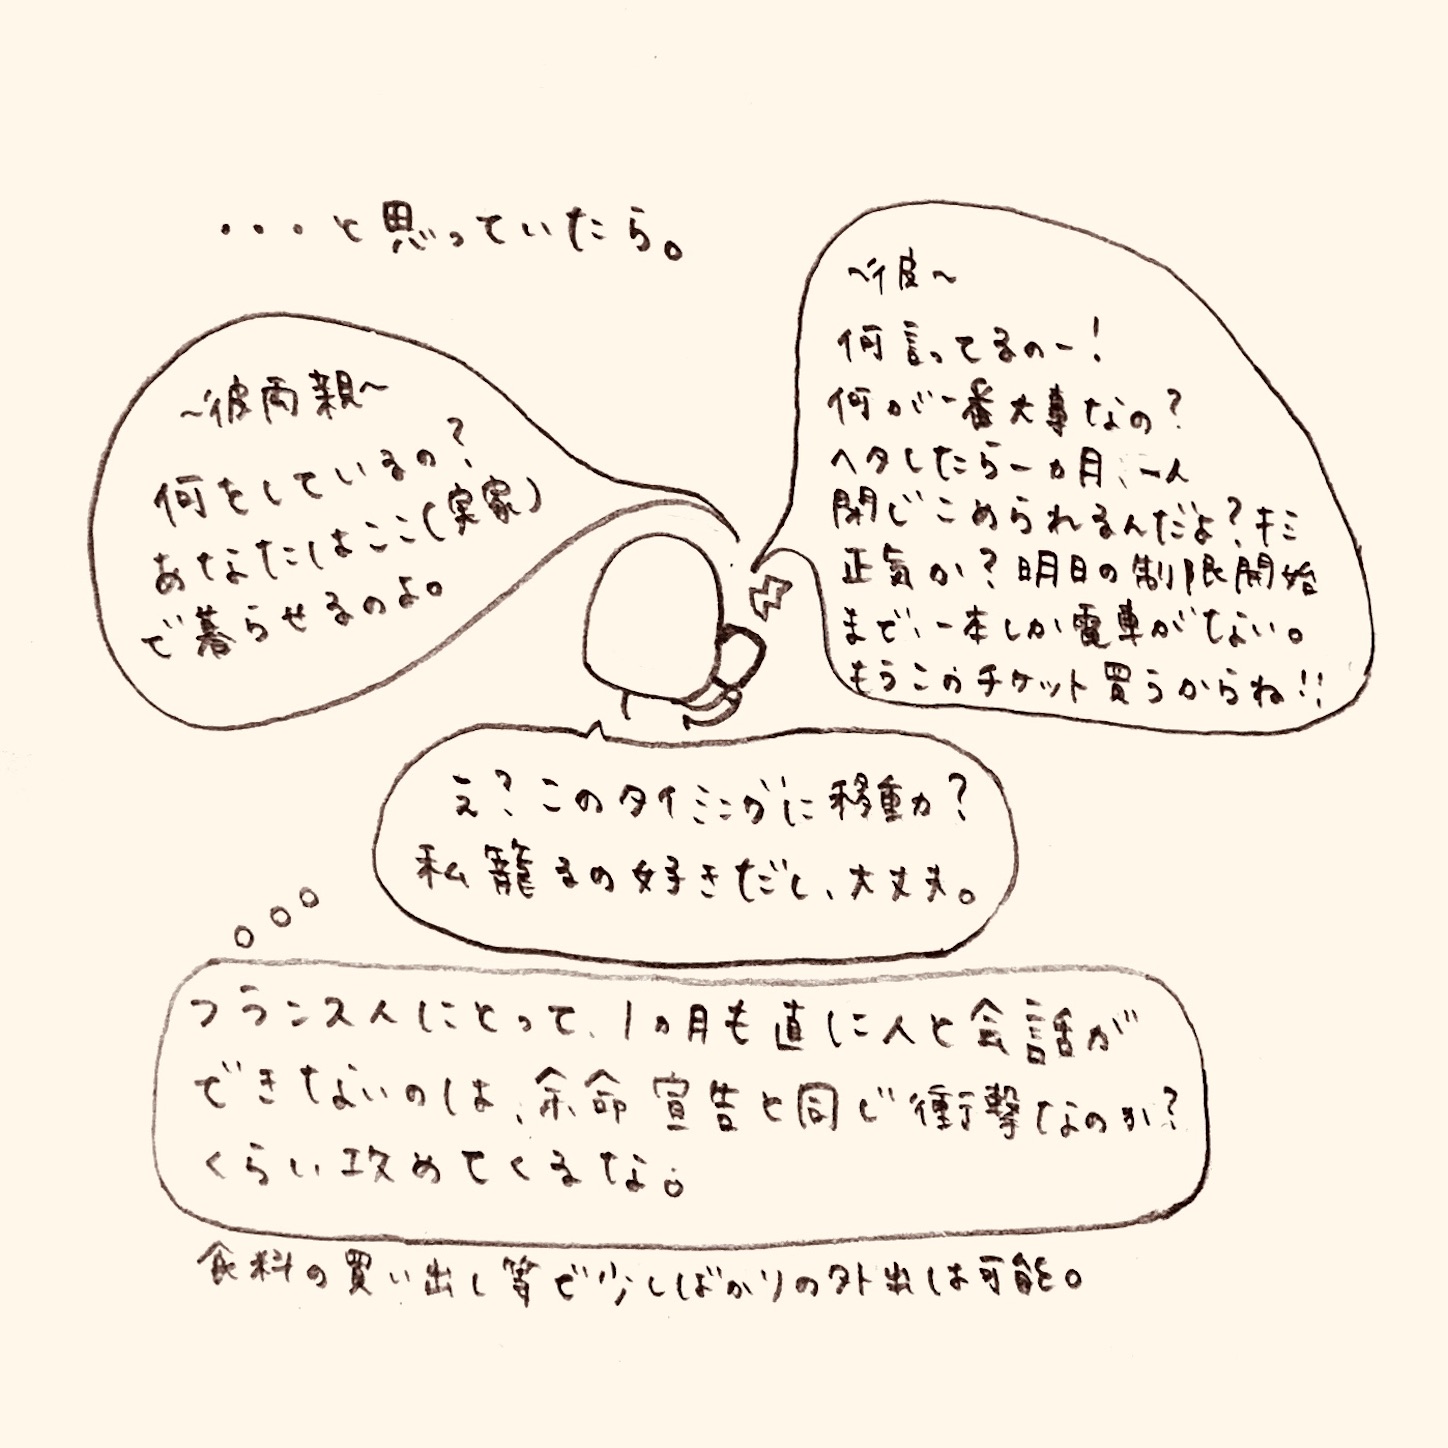 ・・・と思っていたら。
～彼両親～
何をしているの？
あなたはここ(実家)
で暮らせるのよ。
～彼～
何言ってるのー！
何が一番大事なの？
ヘタしたら一ヵ月、一人
閉じこめられるんだよ？キミ
正気か？明日の制限開始
まで、一本しか電車がない。
もうこのチケット買うからね!!
え？このタイミングに移動か？
私籠るの好きだし、大丈夫。
フランス人にとって、1ヵ月も直に人と会話が
できないのは、余命宣告と同じ衝撃なのか？
くらい攻めてくるな。
食料の買い出し等で少しばかりの外出は可能。